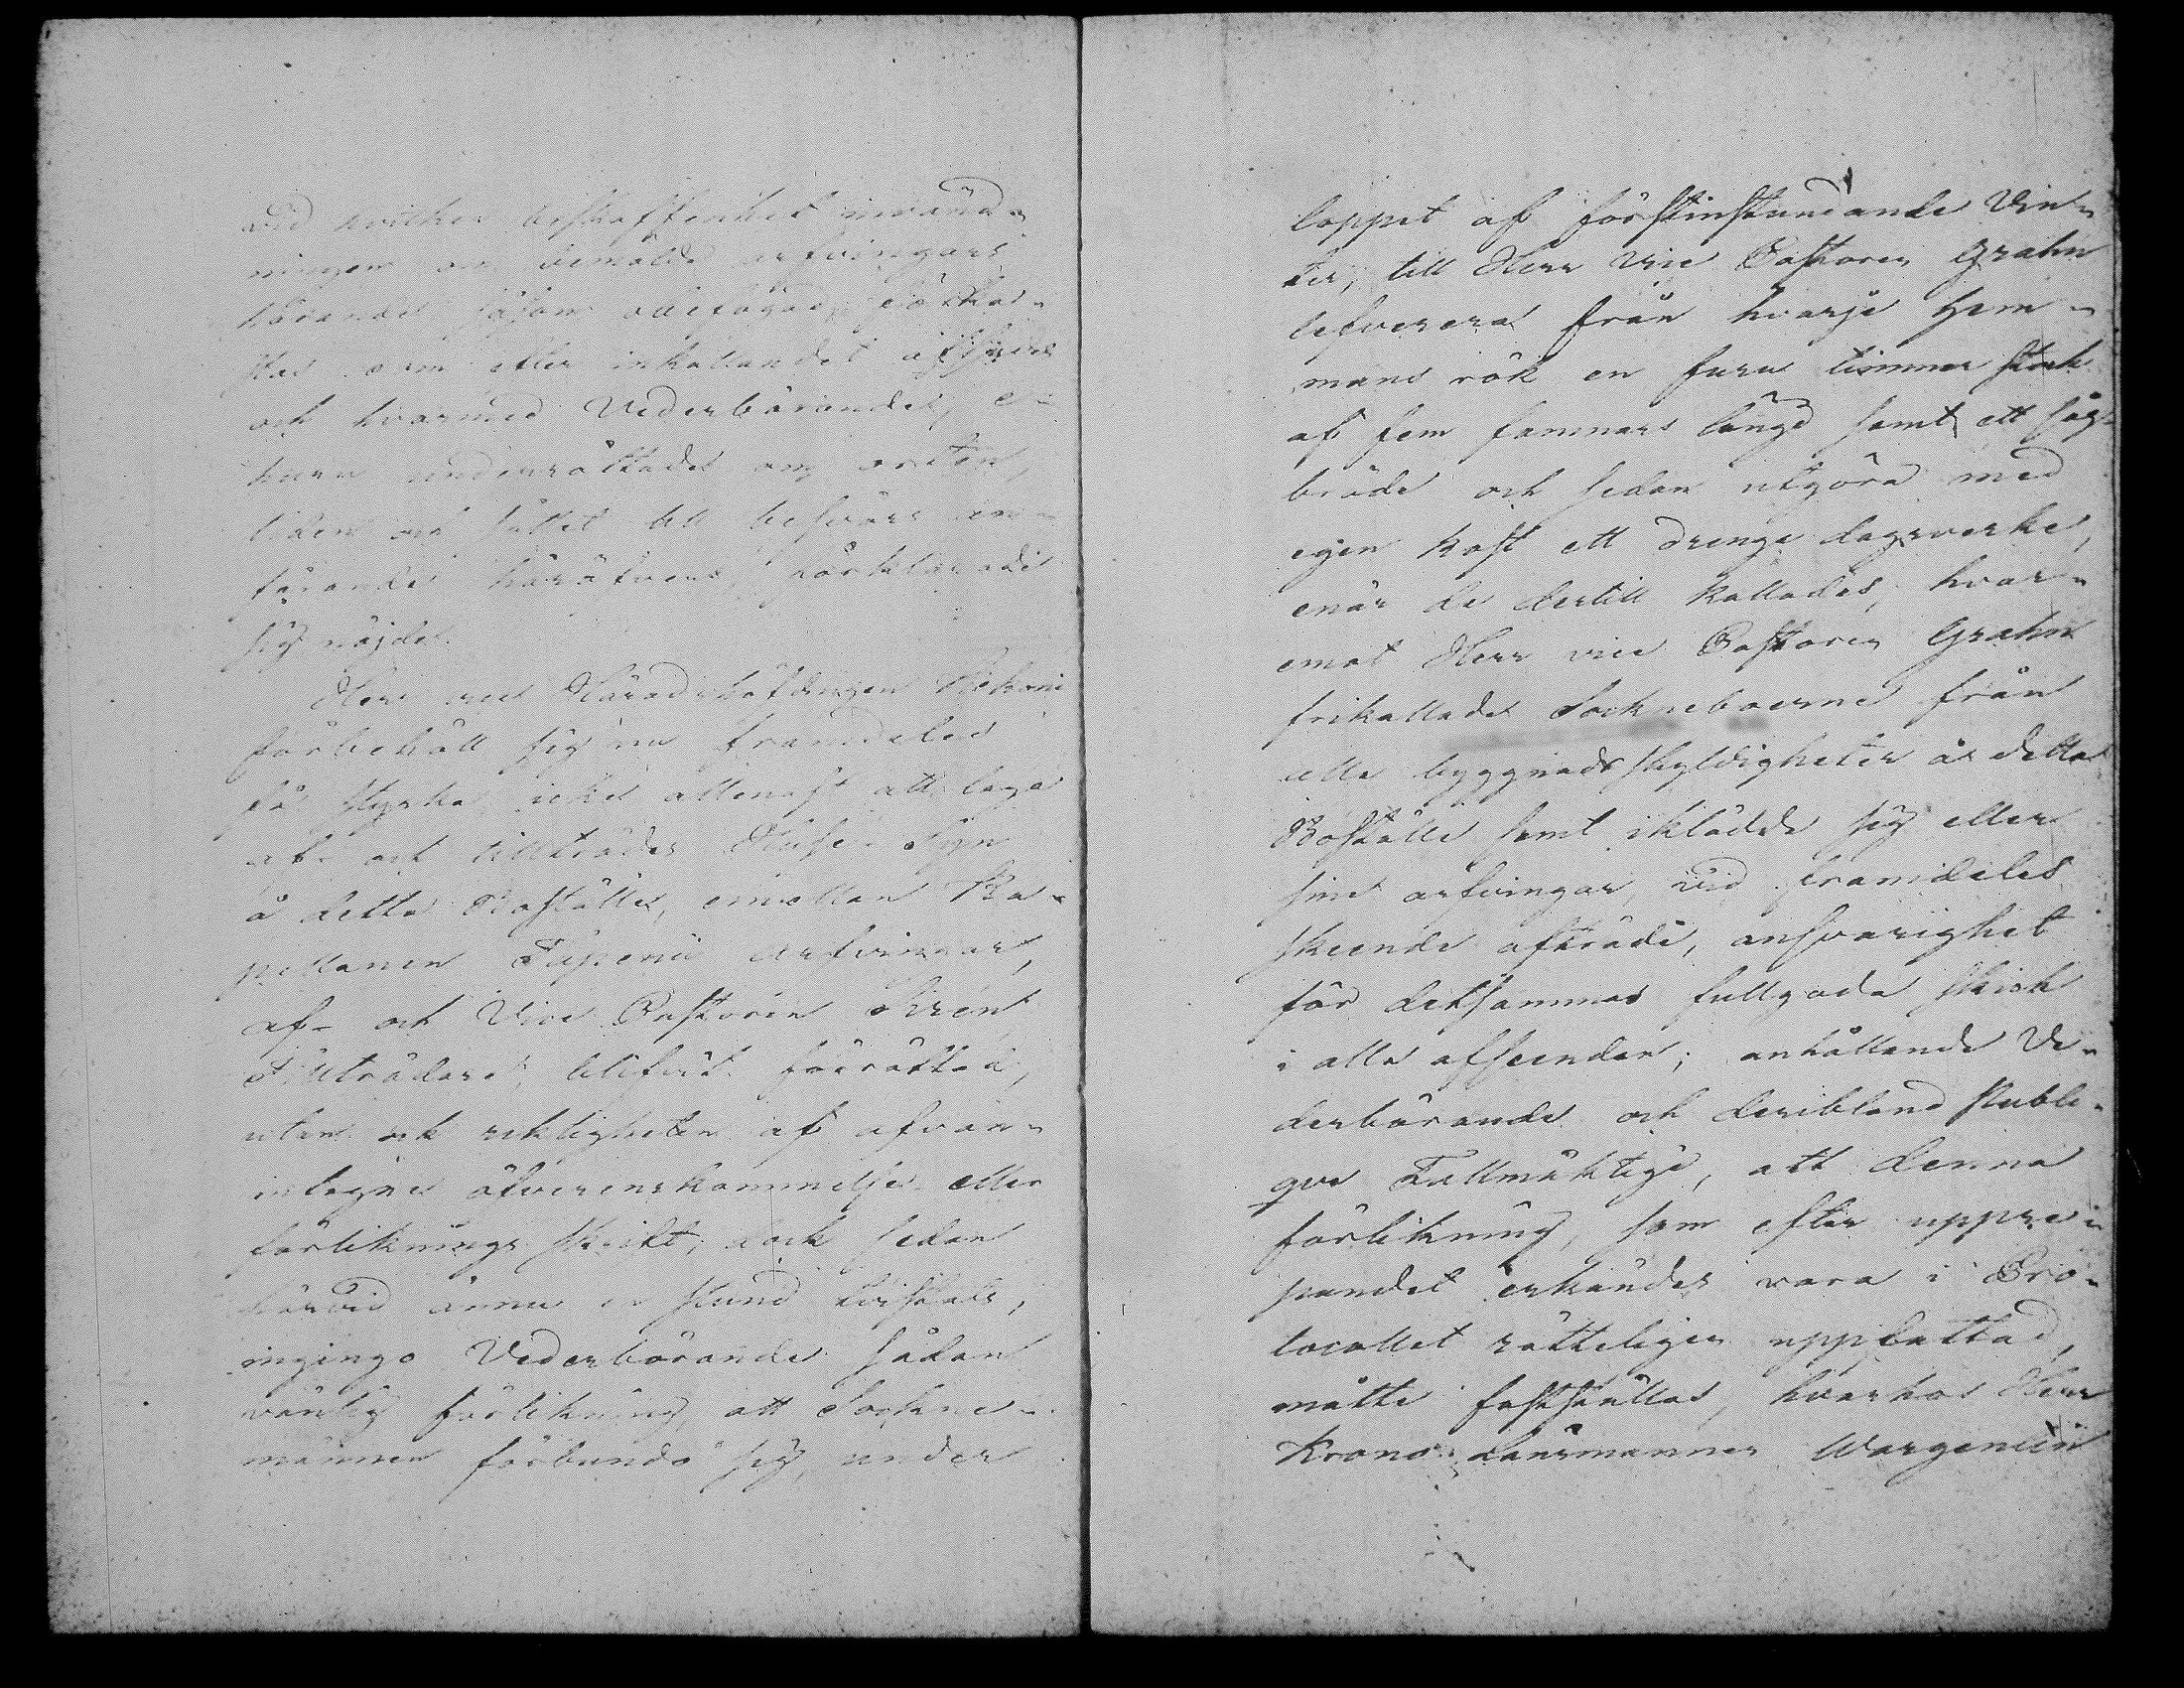 vid hvilken beskaffenhet invänd-
ningen om bemälde arfvingars
hörande såsom obefogad förkla-
des som efter inkallandet afsades
och hvarmed Vederbörande, e-
huru underrättade om orten,
tiden och sättet till besvärs an-
förande häröfver, förklarade
sig nöjde.
Herr vice Häradshöfdingen
förbehöll sig nu framdeles
få styrka icke allenast att laga
af- och tillträdes Huse-Syn
å detta Boställe, emellan Ka-
pellanen arfvingar,
af- och Vice Pastoren Sirén
Tillträdare, blifvit förrättad,
utan ock riktigheten af ofvan-
intagne öfverenskommelse eller
förliknings skrift; dock sedan
härvid ännu en stund tvistats,
ingingo Vederbörande sådan
vänlig förlikning, att Sockne-
männen förbundo sig, under
loppet af förstinstundande Vin-
ter, till Herr Vice Pastoren Grahn
lefverera från hvarje Hem-
mans rök en furu timmer stock
af fem famnars längd samt ett såg-
bräde och sedan utgöra med
egen kost ett drenge dagsverke,
enär de dertill kallades, hvar-
emot Herr vice Pastoren Grahn
frikallade Sockneboerne från
alla byggnads skyldigheter å detta
Boställe samt iklädde sig eller
sine arfvingar, vid framdeles
skeende afträde, ansvarighet
för detsammas fullgoda skick
i alla afseenden; anhållande Ve-
derbörande och deribland Publi-
que Fullmäktige, att denna
förlikning, som efter uppre-
pandet erkändes vara i Pro-
tocollet rätteligen uppfattad,
måtte fastställas, hvarhos Herr
Krono Länsmannen Wargentin